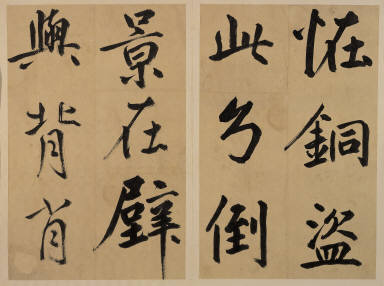 恠銅盜
此乃倒
景在壁
與背肖